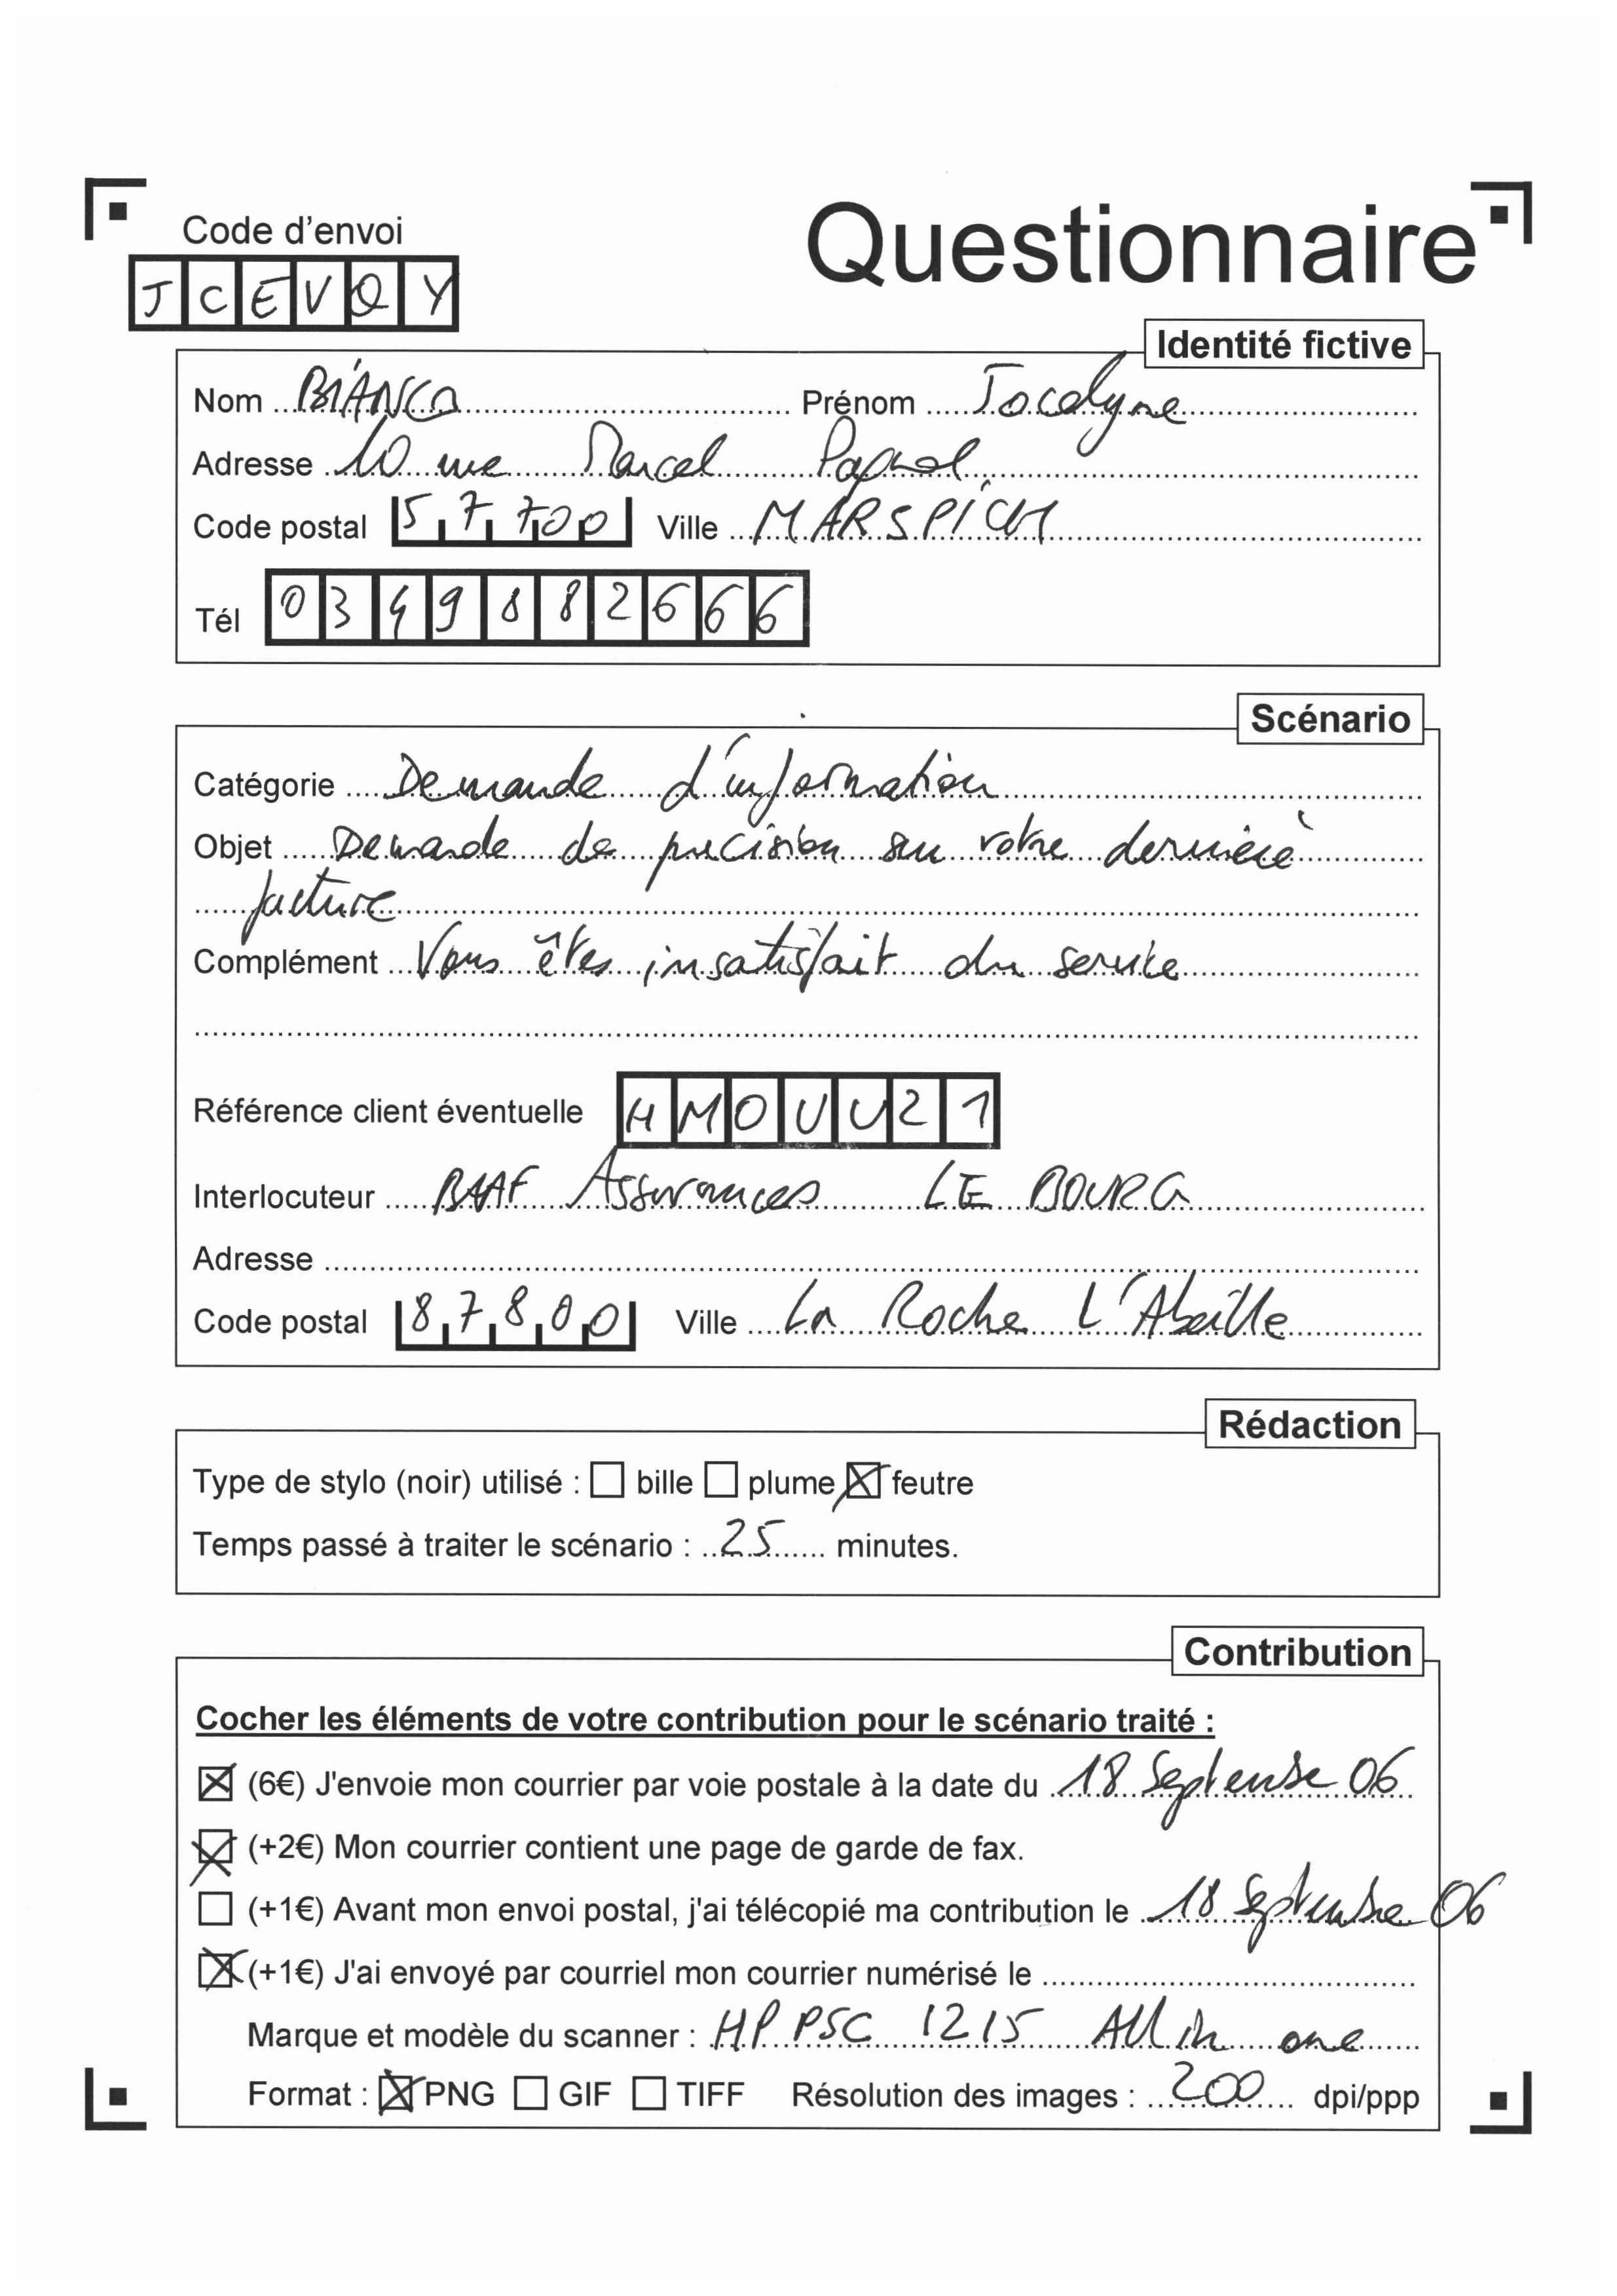 Code d'envoi
Questionnaire
JCEVQY
Identité fictive
Nom BIANCO Prénom Jocelyne
Adresse 10 rue Marcel Pagnol
Code postal 57700 Ville MARSPICH
Tél 0349882666
Scénario
Catégorie Demande d'information
Objet Demande de précision sur votre dernière
facture
Complément Vous êtes insatisfait du service
Référence client éventuelle HMOUU21
Interlocuteur Assurances LE BOURG
Adresse
Code postal 87800 Ville La Roche L'Abeille
Rédaction
Type de stylo (noir) utilisé : ☐ bille ☐ plume ☒ feutre
Temps passé à traiter le scénario : 25 minutes.
Contribution
Cocher les éléments de votre contribution pour le scénario traité :
☒ (6€) J'envoie mon courrier par voie postale à la date du 18 Septembre 06
☒ (+2€) Mon courrier contient une page de garde de fax.
☐ (+1€) Avant mon envoi postal, j'ai télécopié ma contribution le 18 Septembre 06
☒ (+1€) J'ai envoyé par courriel mon courrier numérisé le
Marque et modèle du scanner : HP PSC 1215 All in one
Format : ☒ PNG ☐ GIF ☐ TIFF Résolution des images : 200 dpi/ppp